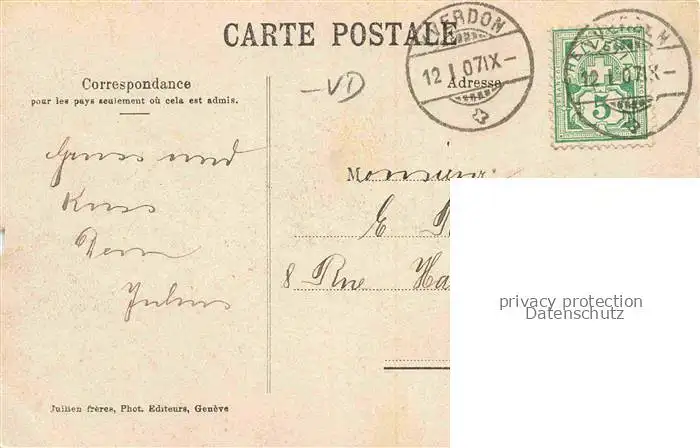 CARTE POSTALE
Correspondance
pour les pays seulement où cela est admis.
Adresse
YVERDON
12 I 07 IX-
12 I 07 IX-
HELVETIA
5
-VD
Gruss und
Kuss
Dein
Julius
Monsieur
E
8 Rue Ha
privacy protection
Datenschutz
Jullien frères, Phot. Editeurs, Genève